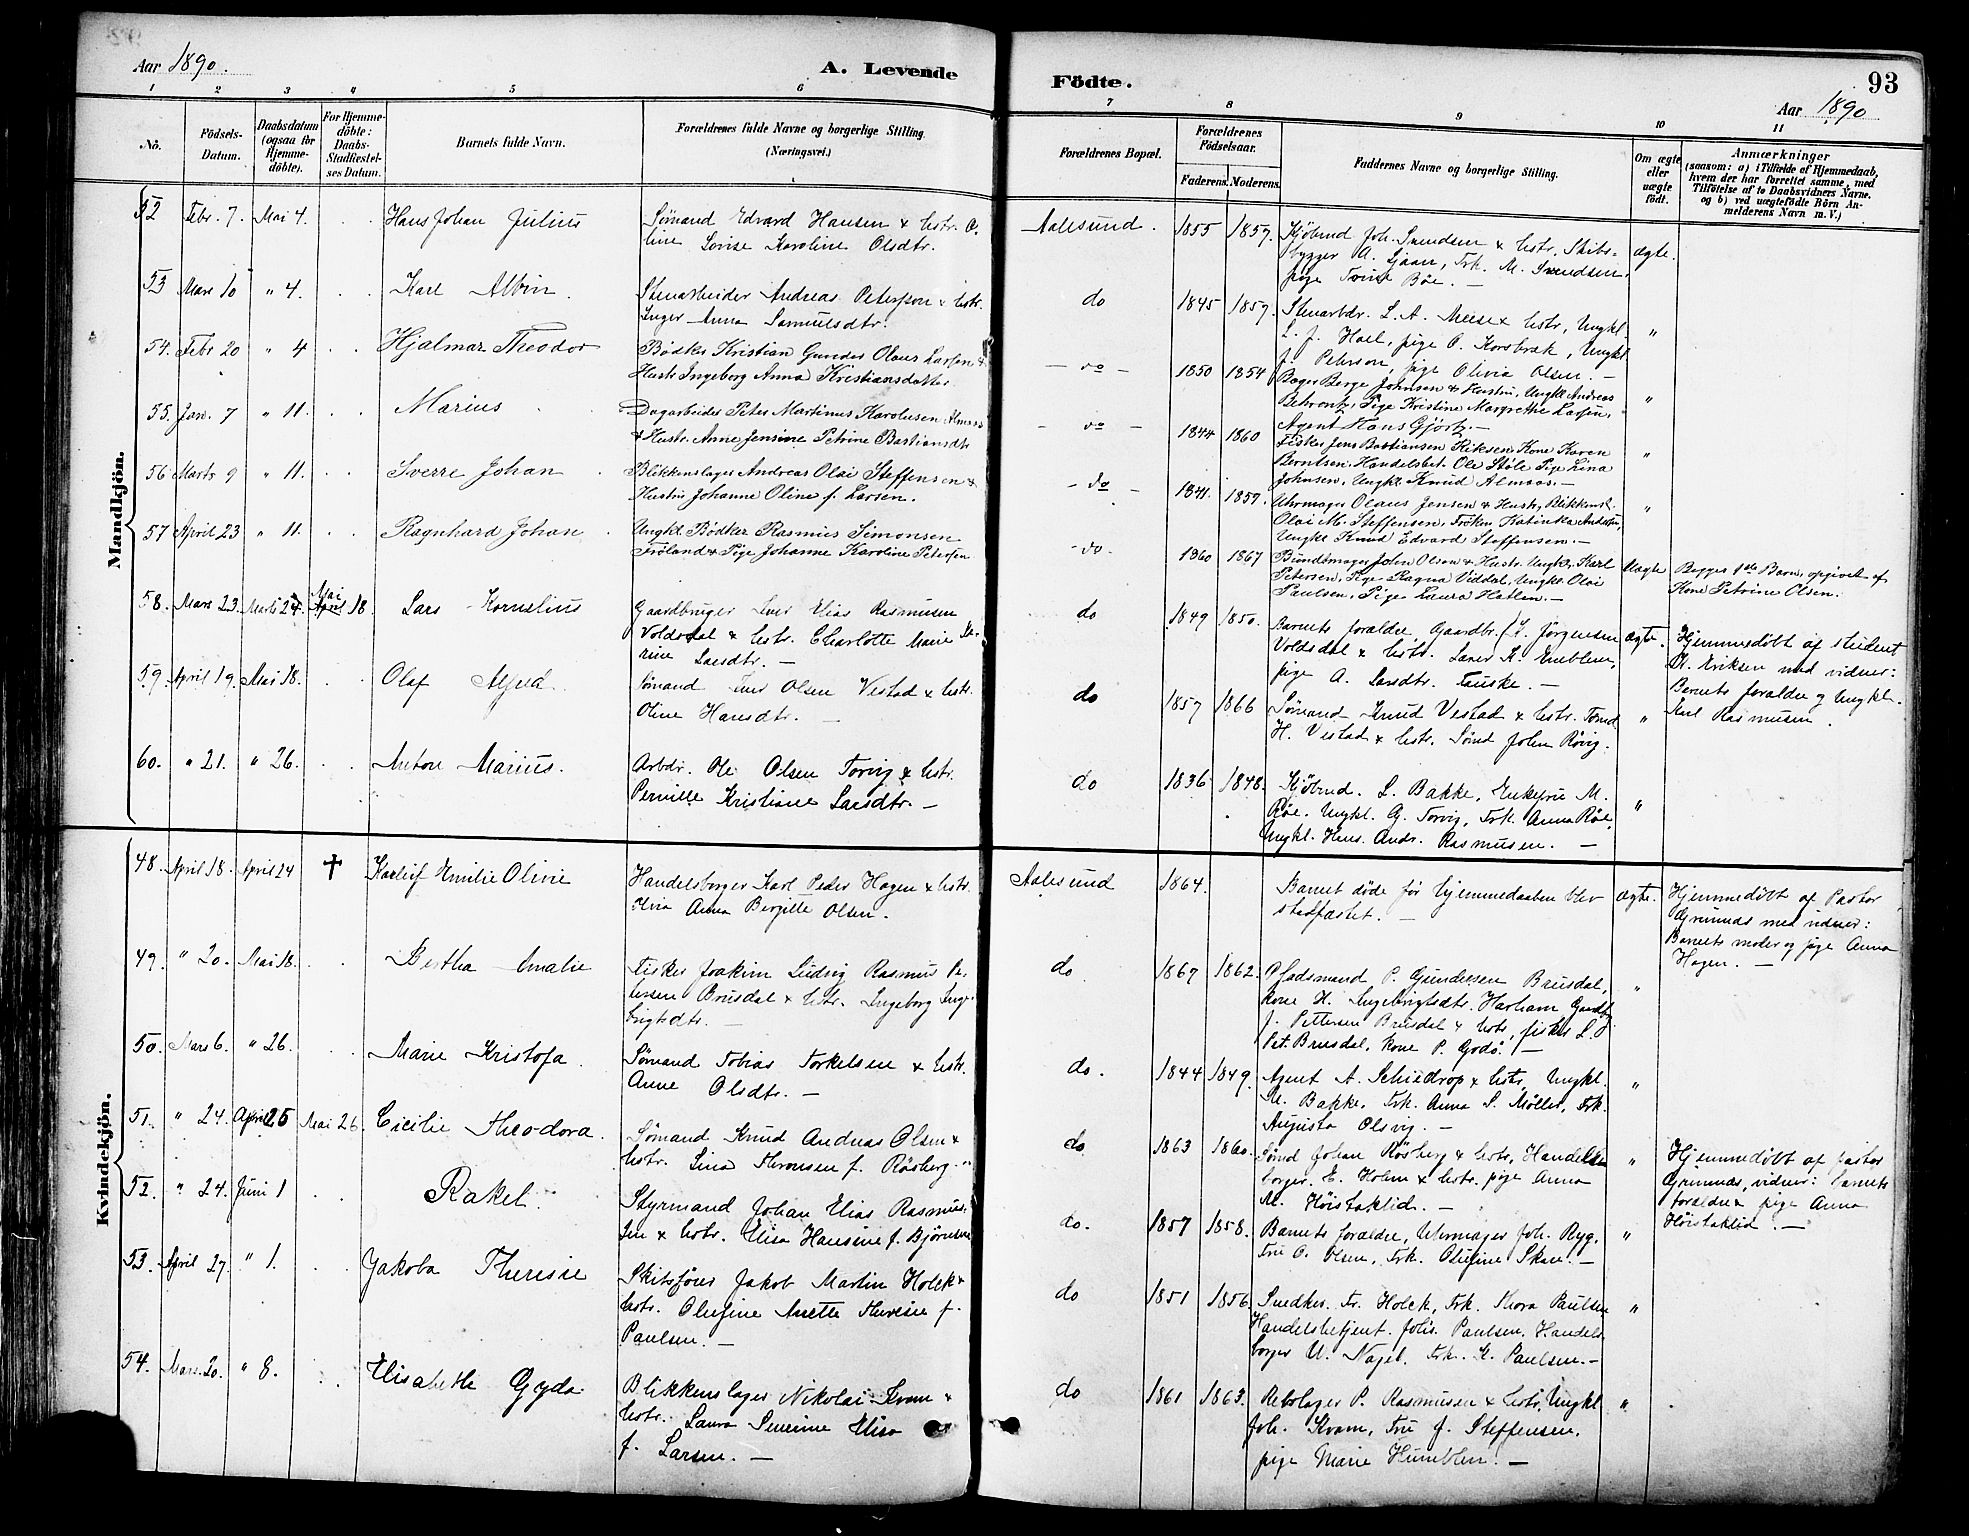 Aar 1890.
A. Levende
Födte.
93
Aar 1890
1 2 3 4 5 6 7 8 9 10 11
No.
Födsels-
Datum.
Daabsdatum
(ogsaa for
Hjemme-
döbte).
For Hjemme-
döbte:
Daabs-
Stadfæstel-
ses Datum.
Barnets fulde Navn.
Forældrenes fulde Navne og borgerlige Stilling.
(Næringsvei.)
Forældrenes Bopæl.
Forældrenes
Födselsaar.
Faderens. Moderens.
Faddernes Navne og borgerlige Stilling.
Om ægte
eller
uægte
födt.
Anmærkninger
(saasom: a) i Tilfælde af Hjemmedaab,
hvem der har forrettet samme, med
Tilföielse af to Daabsvidners Navne,
og b) ved uægtefödte Börn An-
melderens Navn m. V.)
Mandkjön.
52 Febr. 7. Mai 4. Hans Johan Julius
Sømand Edvard Hansen & hstr. O-
line Lovise Karoline Olsdtr.
Aalesund. 1855 1857.
Kjøbmd Joh. Svendsen & hstr, Skibs-
bygger A. Liaaen, Frk. M. Svendsen,
pige Trine Böe. —
ægte.
53 Mars 10 " 4. Karl Albin.
Stenarbeider Andreas Peterson & hstr.
Inger Anna Samuelsdtr.
do 1845 1857.
Stenarbdr. L. A. Meise & hstr, Ungkl.
L. J. Hall, pige P. Korsbrek, Ungkl
J. Peterson, pige Olivia Olsen. —
"
54. Febr 20 " 4 Hjalmar Theodor
Bødker Kristian Gunder Olaus Larsen &
Hustr. Ingeborg Anna Kristiansdatter.
— do — 1850 1854
Bager Berge Johnsen & Hustru, Ungkl. Andreas
Behrentz, Pige Kristine Margrethe Larsen,
Agent Hans Gjørtz. —
"
55. Jan. 7 " 11. Marius
Dagarbeider Peter Martinus Karolusen Almaas
& Hustr. Anne Jensine Petrine Bastiansdtr
— do — 1844 1860
Fisker Jens Bastiansen Riksen, Kone Karen
Berntsen, Handelsbet. Ole Støle, Pige Lina
Johnsen, Ungkl. Knud Almaas. —
"
56 Marts 9 " 11. Sverre Johan
Blikkenslager Andreas Olai Steffensen &
Hustru Johanne Oline f. Larsen.
— do — 1841. 1857.
Uhrmager Olaus Jensen & Hustr, Blikkensl.
Olai M. Steffensen, Frøken Katinka Andersen,
Ungkl. Knud Edvard Steffensen. —
"
57 April 23 " 11. Ragnhard Johan
Ungkl. Bödker Rasmus Simonsen
Fröland & Pige Johanne Karoline Petersen
— do. 1860 1867
Bundtmager John Olsen & Hustr. Ungkr. Karl
Petersen, Pige Ragna Viddal, Ungkr. Olai
Paulsen, Pige Laura Hatlen. —
Uægte
Begges 1ste Barn, opgivet af
Kone Petrine Olsen.
58. Mars 23. Marts 24. Mai April 18 Lars Kornelius
Gaardbruger Iver Elias Rasmusen
Voldsdal & hstr. Charlotte Marie Ka-
rine Larsdtr. —
do 1849 1850.
Barnets forældre, Gaardbr. K. Jørgensen
Voldsdal & hstr. Laner K. Emblem,
pige A. Larsdtr. Fauske. —
ægte.
Hjemmedøbt af student
K. Eriksen med vidner:
Barnets forældre og Ungkl.
Karl Rasmusen.
59. April 19. Mai 18. Olaf Alfred
Sømand Iver Olsen Vestad & hstr.
Oline Hansdtr. —
do 1857 1866
Sømand Knud Vestad & hstr. Tømd
H. Vestad & hstr. Sømd John Røvig.
"
60. " 21. " 26. Anton Marius.
Arbdr. Ole Olsen Torvig & hstr.
Pernille Kristiane Larsdtr. —
do 1836 1848.
Kjöbmd. L. Bakke, Enkefru M.
Röe, Ungkl. G. Torvig, Frk. Anna Röe,
Ungkl. Hans Andr. Rasmusen. —
"
Kvindekjön.
48. April 18. April 24 ✝ Emilie Olivie
Handelsborger Karl Peder Hagen & hstr.
Anna Bergitte Olsen.
Aalesund 1864.
Barnet døde før hjemmedaaben blev
stadfæstet. —
ægte.
Hjemmedøbt af Pastor
Grimnæs med vidner:
Barnets moder og pige Anna
Hagen. —
49. " 20. Mai 18. Bertha Amalie
Fisker Joakim Ludvig Rasmus Pe-
tersen Brusdal & hstr. Ingeborg Inge-
brigtsdtr. —
do 1867 1862.
Pladsmand P. Gjendersen Brusdal,
kone H. Ingebrigtsdtr. Harham, Gaardbr
J. Pettersen Brusdal & hstr, fisker L.
Pet. Brusdal, kone P. Godö. —
"
50. Mars 6. " 26. Marie Kristofa
Sømand Tobias Torkelsen & hstr.
Anne Olsdtr. —
do. 1844 1849.
Agent A. Schiedrop & hstr, Ungkl.
M. Bakke, Frk. Anna S. Møller, Frk.
Augusta Olsvig. —
"
51. " 24. April 25 Mai 26. Cicilie Theodora.
Sømand Knud Andreas Olsen &
hstr. Lina Thronsen f. Røsberg. —
do 1863 1860.
Sømd Johan Røsberg & hstr, Handels-
borger. E. Holm & hstr. pige Anna
M. Höistaklid. —
"
Hjemmedöbt af pastor
Grimnæs, vidner: barnets
forældre & pige Anna
Höistaklid. —
52. " 24. Juni 1 Rakel.
Styrmand Johan Elias Rasmus-
sen & hstr. Elisa Hansine f. Bjørnsen
do. 1857 1858.
Barnets forældre, Uhrmager Joh. Ryg,
Fru O. Olsen, Frk. Olufine Skau. —
"
53. April 27. " 1. Jakoba Theresie
Skibsfører Jakob Martin Holck &
hstr. Olufine Anette Theresie f.
Paulsen. —
do 1851 1856.
Snedker. Fr. Holck, Frk. Thora Paulsen
Handelsbetjent. Johs. Paulsen, Handels-
borger U. Nagel. Frk. K. Paulsen. —
"
54. Mars 20. " 8. Elisabeth Gyda
Blikkenslager Nikolai Kvam &
hstr. Laura Severine Elisa
f. Larsen. —
do 1861 1863.
Rebslager P. Rasmusen & hstr, Ungkl
Joh. Kvam, Fru J. Steffensen,
pige Marie Humblen. —
"